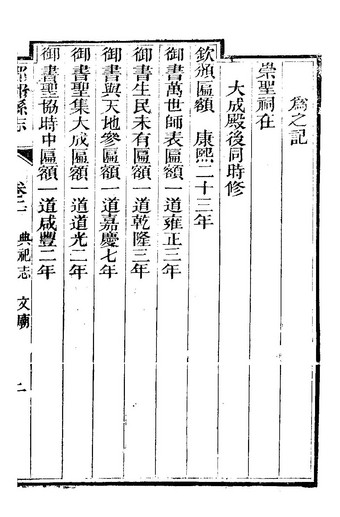 爲之記
崇聖祠在
大成殿後同時修
欽頒匾額 康熙二十三年
御書萬世師表匾額一道雍正三年
御書生民未有匾額一道乾隆三年
御書與天地參匾額一道嘉慶七年
御書聖集大成匾額一道道光二年
御書聖協時中匾額一道咸豐二年
縣志 卷二 典祀志 文廟 二